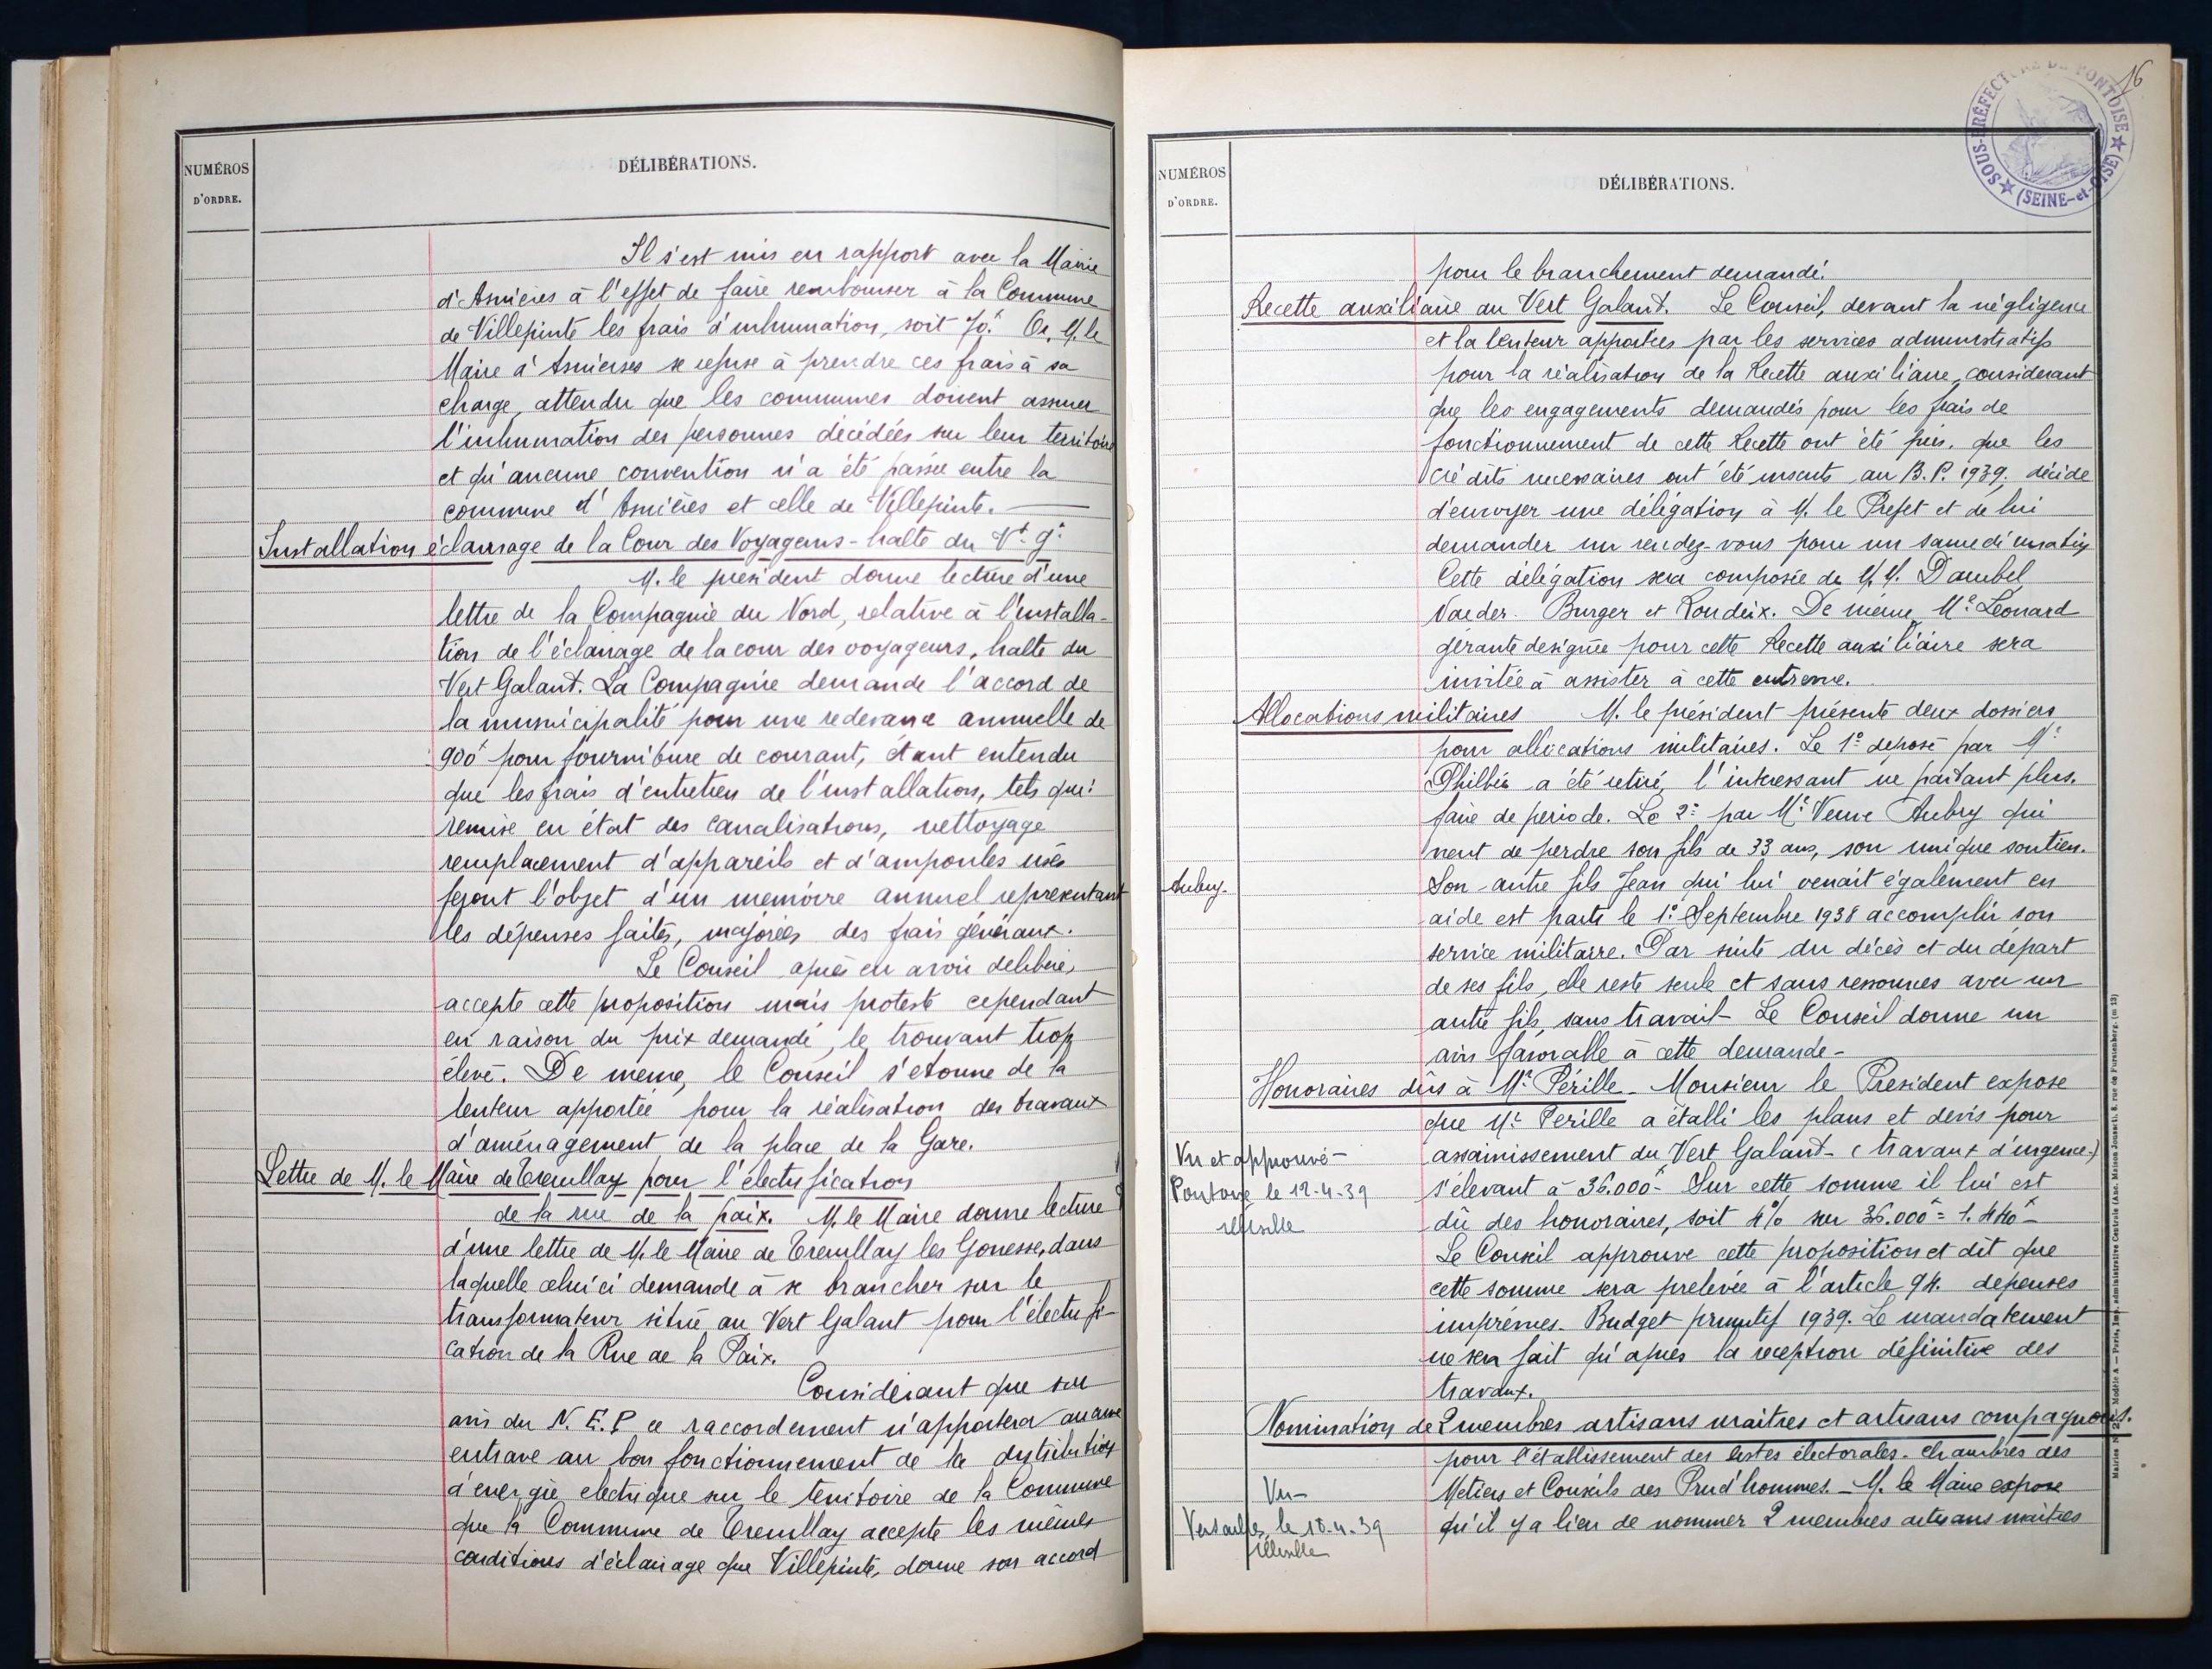 NUMÉROS
D'ORDRE.
DÉLIBÉRATIONS.
Il s'est mis en rapport avec la Mairie
d'Asnières à l'effet de faire rembourser à la Commune
de Villepinte les frais d'inhumation, soit 70f. Or, M. le
Maire d'Asnières se refuse à prendre ces frais à sa
charge, attendu que les communes doivent assurer
l'inhumation des personnes décédées sur leur territoire
et qu'aucune convention n'a été passée entre la
commune d'Asnières et celle de Villepinte.
Installation éclairage de la Cour des Voyageurs - halte du Vt. gt.
M. le président donne lecture d'une
lettre de la Compagnie du Nord, relative à l'installa-
tion de l'éclairage de la cour des voyageurs, halte du
Vert Galant. La Compagnie demande l'accord de
la municipalité pour une redevance annuelle de
900f pour fourniture de courant, étant entendu
que les frais d'entretien de l'installation, tels que:
remise en état des canalisations, nettoyage
remplacement d'appareils et d'ampoules usés
feront l'objet d'un mémoire annuel représentant
les dépenses faites, majorées des frais généraux.
Le Conseil après en avoir délibéré,
accepte cette proposition mais proteste cependant
en raison du prix demandé, le trouvant trop
élevé. De meme, le Conseil s'etonne de la
lenteur apportée pour la réalisation des travaux
d'aménagement de la place de la Gare.
Lettre de M. le Maire de Tremblay pour l'électrification
de la rue de la paix. M. le Maire donne lecture
d'une lettre de M. le Maire de Tremblay les Gonesse, dans
laquelle celui ci demande à se brancher sur le
transformateur situé au Vert Galant pour l'électrifi-
cation de la Rue de la Paix.
Considérant que sur
avis du N. E. P ce raccordement n'apportera aucune
entrave au bon fonctionnement de la distribution
d'energie electrique sur le territoire de la Commune
que la Commune de Tremblay accepte les mêmes
conditions d'éclairage que Villepinte, donne son accord
16
SOUS-PRÉFECTURE DE PONTOISE
(SEINE-et-OISE)
NUMÉROS
D'ORDRE.
DÉLIBÉRATIONS.
pour le branchement demandé.
Recette auxiliaire au Vert Galant. Le Conseil, devant la négligence
et la lenteur apportées par les services administratifs
pour la réalisation de la Recette auxiliaire, considerant
que les engagements demandés pour les frais de
fonctionnement de cette Recette ont été pris, que les
crédits necessaires ont été inscrits au B.P. 1939, décide
d'envoyer une délégation à M. le Prefet et de lui
demander un rendez-vous pour un samedi matin
Cette délégation sera composée de M.M. Daubel
Vaeder. Burger et Roudeix. De même, Me Léonard
gérante désignée pour cette Recette auxiliaire sera
invitée à assister à cette entrevue.
Allocations militaires M. le président présente deux dossiers
pour allocations militaires. Le 1° déposé par Me
a été retiré, l'interessant ne partant plus
faire de periode. Le 2e par Me Veuve Aubry qui
vient de perdre son fils de 33 ans, son unique soutien.
Aubry. Son autre fils Jean qui lui venait également en
aide est parti le 1er Septembre 1938 accomplir son
service militaire. Par suite du décès et du départ
de ses fils, elle reste seule et sans ressources avec un
autre fils, sans travail - Le Conseil donne un
avis favorable à cette demande -
Honoraires dûs à Mr Pérille - Monsieur le President expose
que Mr Perille a établi les plans et devis pour
Vu et approuvé - assainissement du Vert Galant - (travaux d'urgence)
Pontoise le 12-4-39 s'élevant à 36.000f - Sur cette somme il lui est
dû des honoraires, soit 4% sur 36.000f = 1.440f -
Le Conseil approuve cette proposition et dit que
cette somme sera prelevée à l'article 94. depenses
imprévues. Budget primitif 1939. Le mandatement
ne sera fait qu'après la reception définitive des
travaux.
Nomination de 2 membres artisans maitres et artisans compagnons.
pour l'établissement des listes électorales. Chambres des
Vu - Metiers et Conseils des Prud'hommes. - M. le Maire expose
Versailles le 18-4-39 qu'il y a lieu de nommer 2 membres artisans maitres